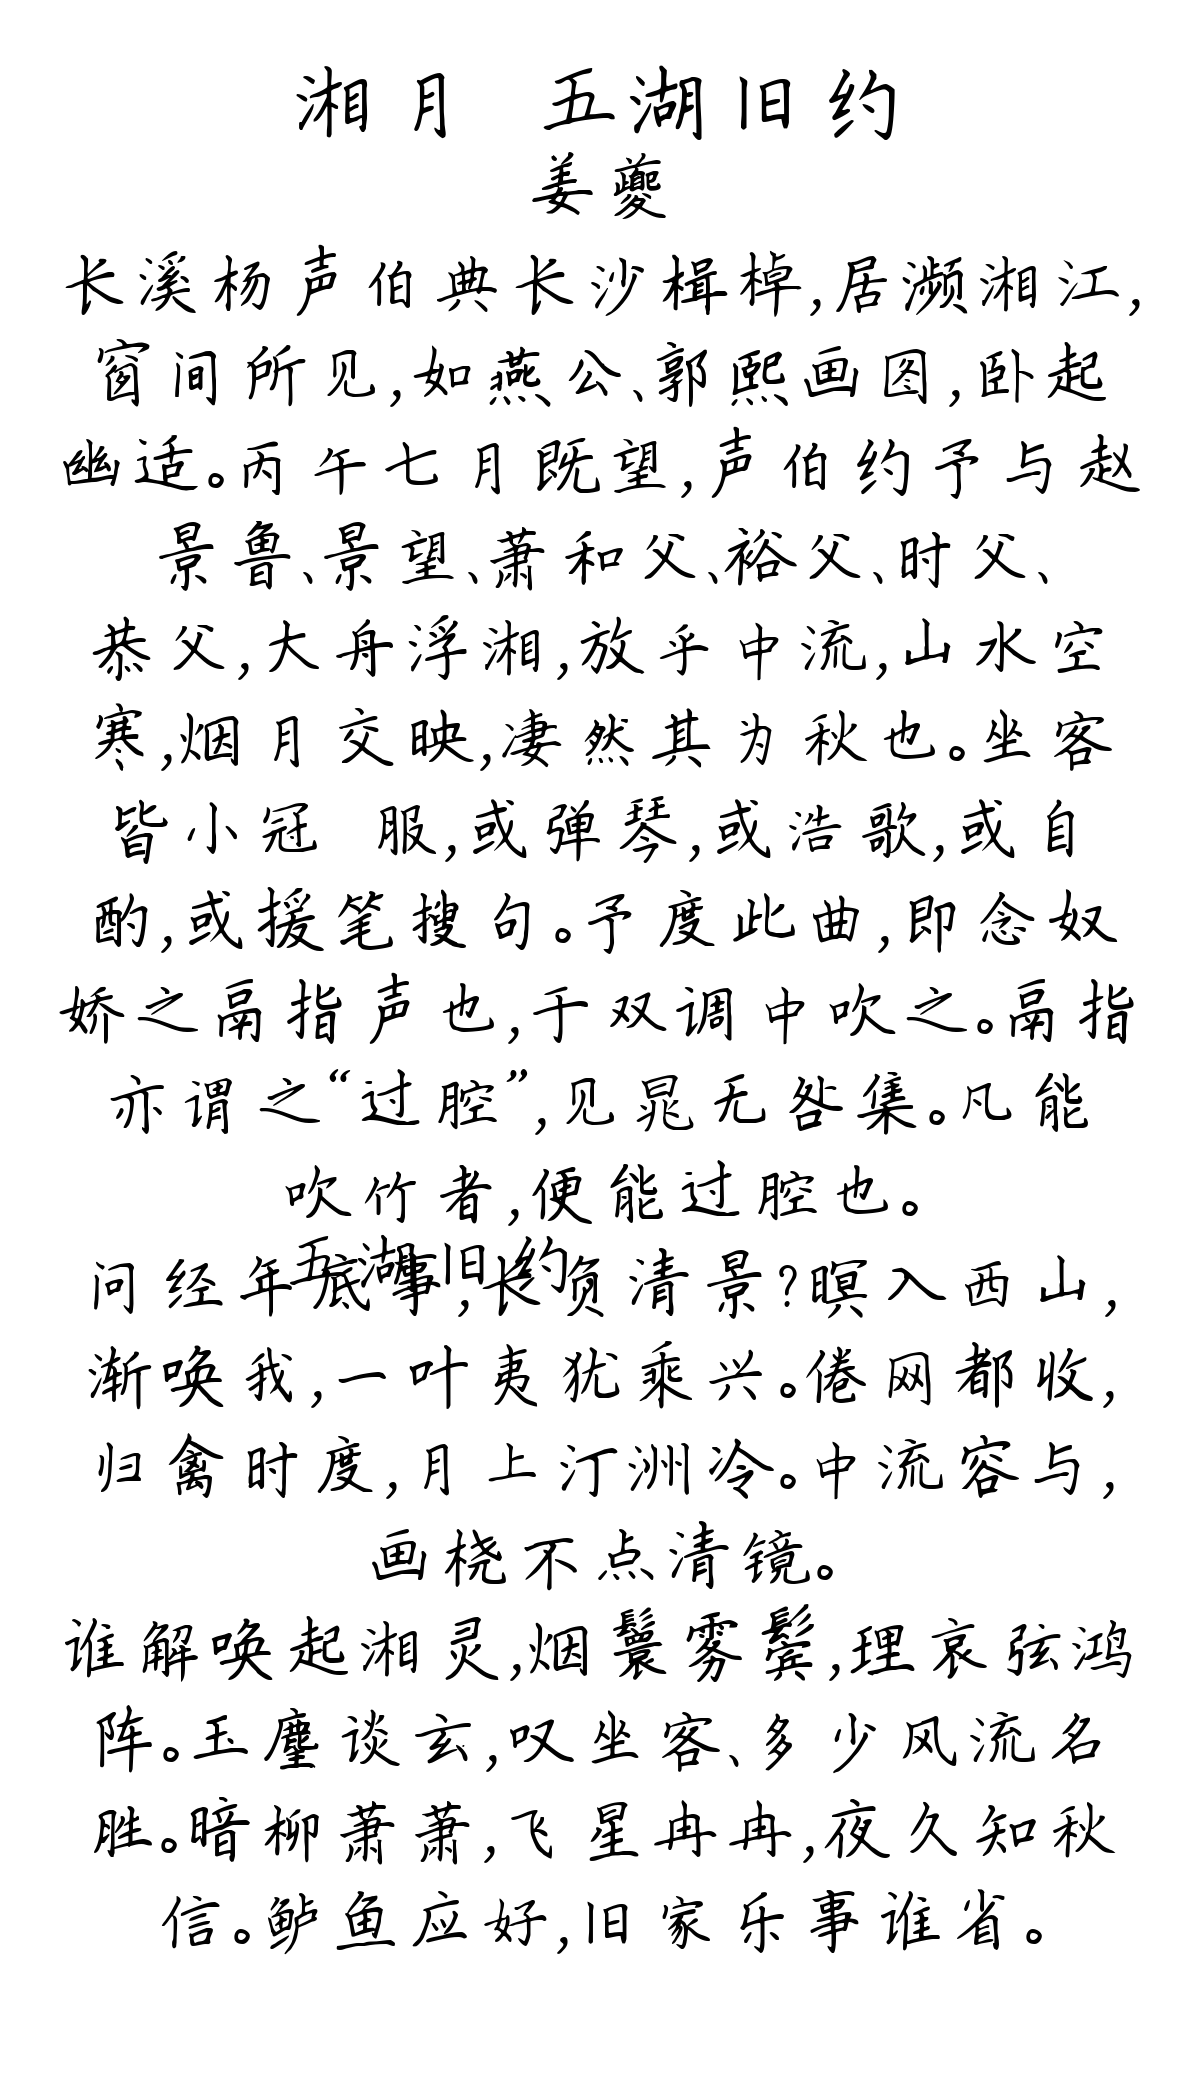 湘月 五湖旧约
姜夔
长溪杨声伯典长沙楫棹,居濒湘江,
窗间所见,如燕公、郭熙画图,卧起
幽适。丙午七月既望,声伯约予与赵
景鲁、景望、萧和父、裕父、时父、
恭父,大舟浮湘,放乎中流,山水空
寒,烟月交映,凄然其为秋也。坐客
皆小冠 服,或弹琴,或浩歌,或自
酌,或援笔搜句。予度此曲,即念奴
娇之鬲指声也,于双调中吹之。鬲指
亦谓之“过腔”,见晁无咎集。凡能
吹竹者,便能过腔也。
五湖旧约
问经年底事,长负清景?暝入西山,
渐唤我,一叶夷犹乘兴。倦网都收,
归禽时度,月上汀洲冷。中流容与,
画桡不点清镜。
谁解唤起湘灵,烟鬟雾鬓,理哀弦鸿
阵。玉麈谈玄,叹坐客、多少风流名
胜。暗柳萧萧,飞星冉冉,夜久知秋
信。鲈鱼应好,旧家乐事谁省。